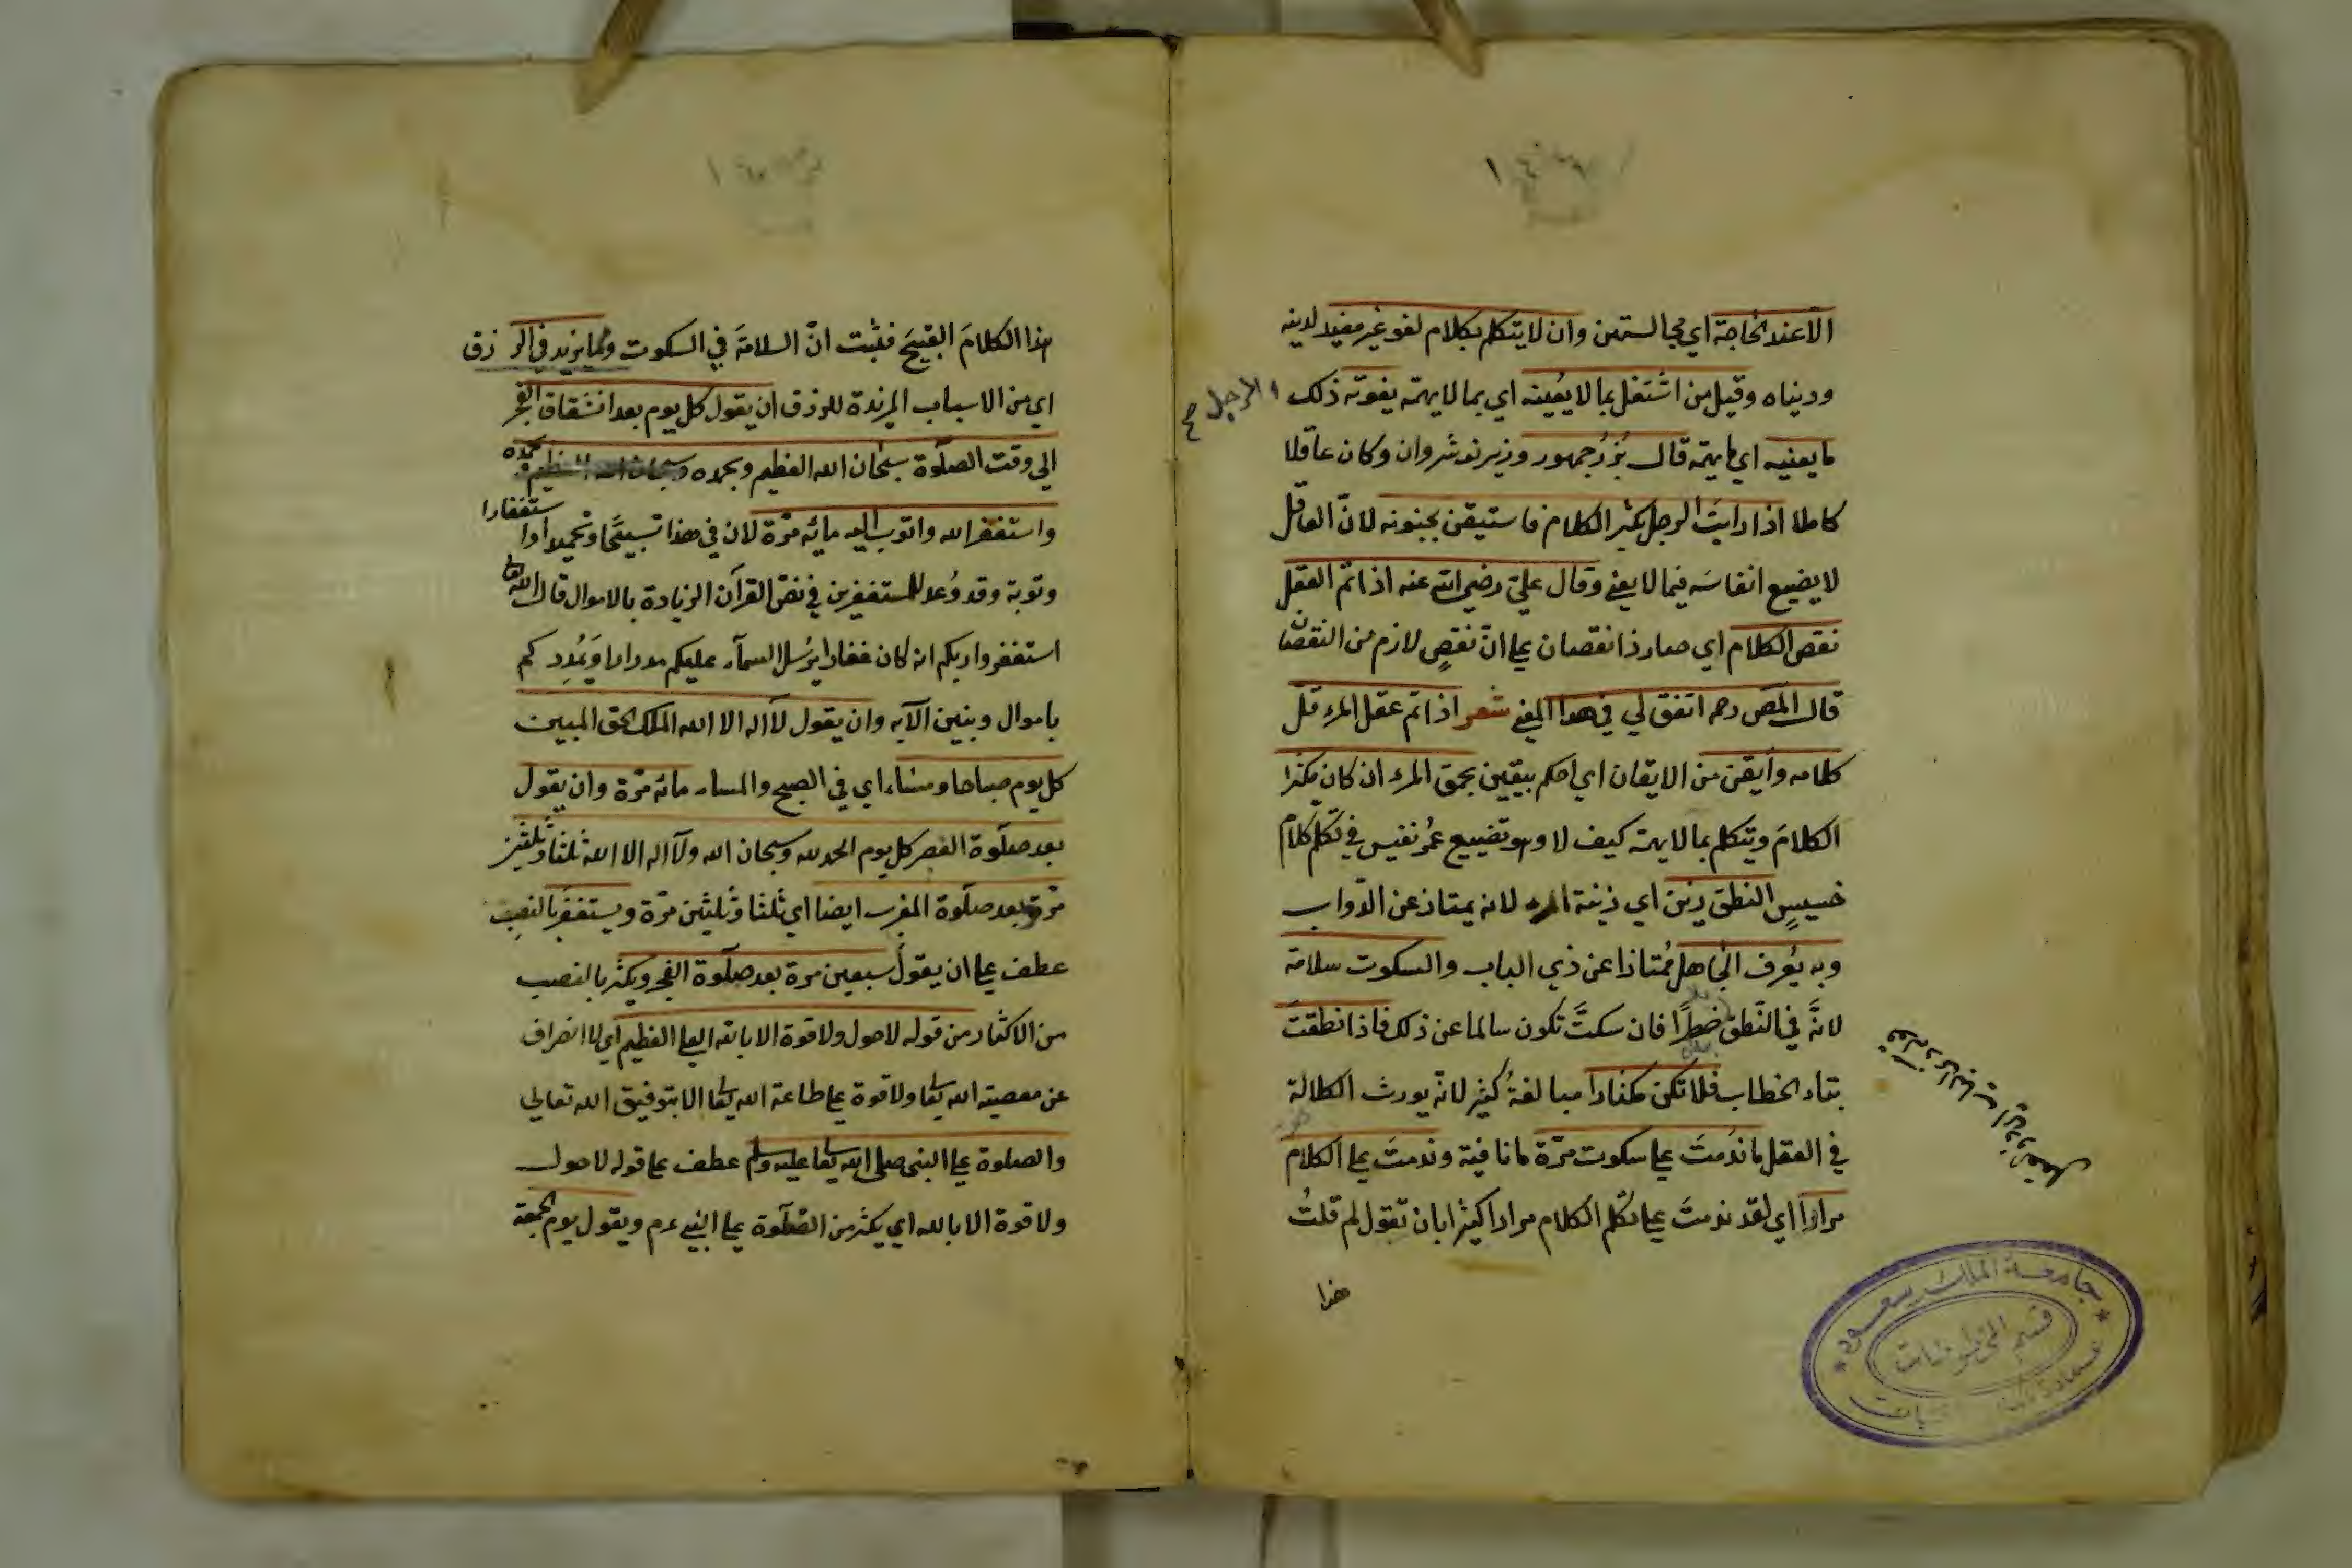 الا عند الحاجة اي مجالستهن وان لا يتكلم بكلام لغو غير مفيد لدينه
ودنياه وقيل من اشتغل بما لا يعينه اي بما لا يهمّه يفوته ذلك
الرجل
ما يعنيه اي ما يهمّه قال بُزُرْجمهور وزير نوشروان وكان عاقلا
كاملا اذا رايتَ الرجل يكثر الكلام فاستيقن بجنونه لانّ العاقل
لا يضيع انفاسَه فيما لا يعني وقال عليّ رضي الله عنه اذا تم العقل
نقص الكلام اي صار ذا نقصان علي انّ نقصٍ لازم من النقصان
قال المص رحه اتفق لي في هذا المعني شعر اذا تم عقل المرءِ قلّ
كلامه وأيقن من الايقان اي احكم بيقين بحمق المرء ان كان مكثرا
الكلامَ ويتكلم بما لا يهمّه كيف لا وهو تضييع عُمُر نفيس في تكلّم كلام
خسيسٍ النطق زين اي زينة المرء لانه يمتاز عن الدّواب
وبه يُعرف الجاهل مُمتازا عن ذي الباب والسكوت سلامة
لانَّه في النّطق ضررًا فان سكتَّ تكون سالما عن ذلك فاذا نطقتَ
بتاء الخطاب فلا تكن مكثارا مبالغةُ كثير لانّه يورث الكلالة
في العقل ما ندمتَ علي سكوت مرّة ما نافية وندمتَ علي الكلام
مرارا اي لقد ندمتَ علي تكلم الكلام مرارا كثيرا بان تقول لم قلتُ
هذا
جامعة الملك سعود
قسم المخطوطات
هذا الكلامَ القبيحَ فثبت انّ السلامةَ في السكوت ومما يزيد في الرزق
اي من الاسباب المزيدة للرزق ان يقول كل يوم بعد انشقاق الفجر
الي وقت الصلوة سبحان الله العظيم وبحمده
واستغفر الله واتوب اليه مائه مرّة لان في هذا تسبيحًا وتحميدا واستغفارا
وتوبة وقد وُعد للمستغفرين في نصّ القرآن الزيادة بالاموال قال الله تعالى
استغفروا ربكم انه كان غفارا يرُسل السمآء عليكم مدرارا ويَمُدِدكم
باموال وبنين الآيه وان يقول لا اله الا الله الملك الحق المبين
كل يوم صباحا ومساء اي في الصبح والمساء مائه مرّة وان يقول
بعد صلوة الفجر كل يوم الحمد لله وسبحان الله ولا اله الا الله ثلثا وثلثين
مرّة وبعد صلوة المغرب ايضا اي ثلثا وثلثين مرّة ويستغفرَ بالنصب
عطف علي ان يقولَ سبعين مرة بعد صلوة الفجر ويكثرَ بالنصب
من الاكثار من قوله لا حول ولا قوة الا بالله العلي العظيم اي لا انصراف
عن معصية الله تعالى ولا قوة علي طاعة الله تعالى الا بتوفيق الله تعالي
والصلوة علي النبي صلى الله تعالى عليه وسلم عطف علي قوله لا حول
ولا قوة الا بالله اي يكثر من الصّلوة علي النبي عم ويقول يوم الجمعة